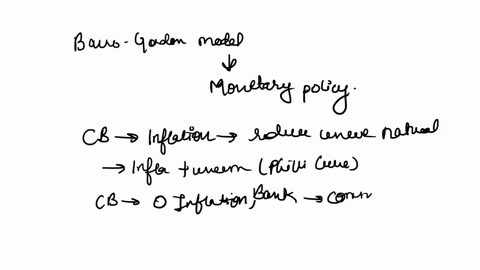 Barro-Gordon model
↓
Monetary policy.
CB → Inflation → reduce unem natural
→ Infla + unem (Philli Curve)
CB → 0 Inflation, Bank → comm